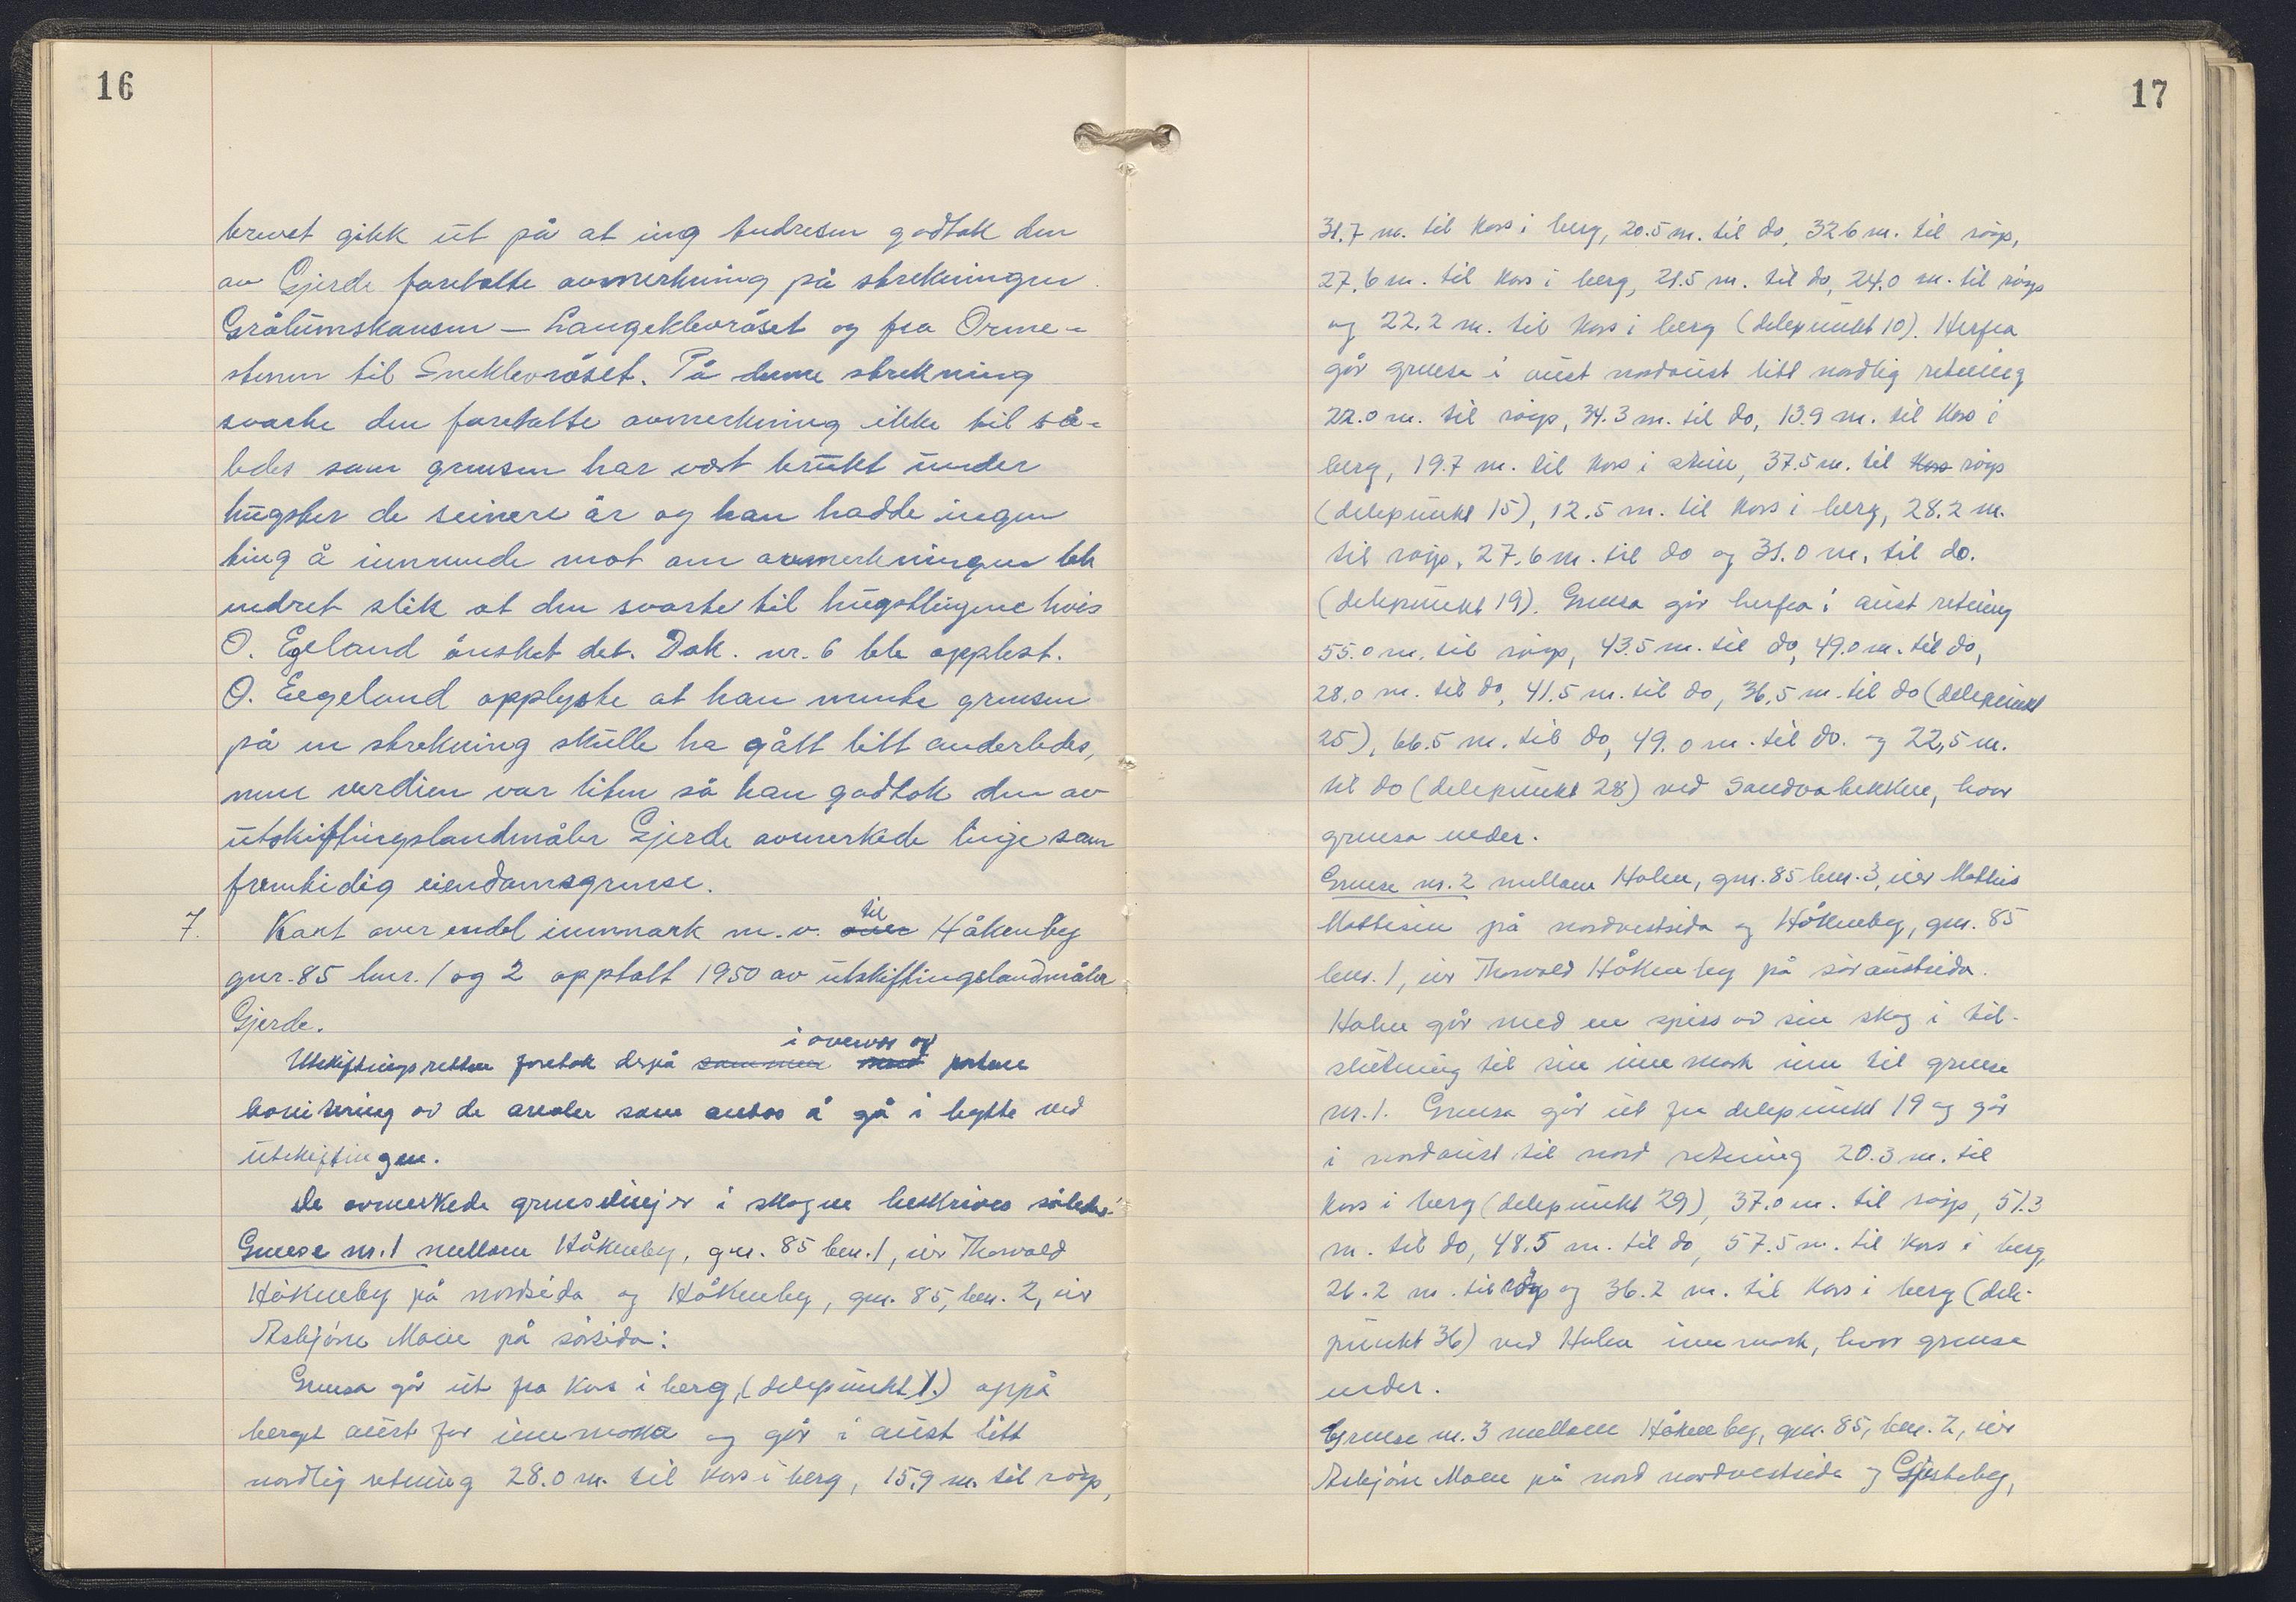 16
brevet gikk ut på at ing Andresen godtok den
av Gjerde foretatte avmerkning på strekningen
Grålumskansen – Langeklevröset og fra Orme-
stenen til Sneklevröset. På denne strekning
svarte den foretatte avmerkning ikke til så-
ledes som grensen har vært brukt under
hugster de seinere år og han hadde ingen
ting å innvende mot om avmerkningen ble
endret slik at den svarte til hugstlinjene hvis
O. Egeland önsket det. Dok. nr. 6 ble opplest.
O. Eegeland opplyste at han mente grensen
på en strekning skulle ha gått litt anderledes,
men verdien var liten så han godtok den av
utskiftingslandmåler Gjerde avmerkede linje som
fremtidig eiendomsgrense.
7. Kart over endel innmark m.v. til Håkenby
gnr. 85 bnr. 1 og 2 opptatt 1950 av utskiftingslandmåler
Gjerde.
Utskiftingsretten foretok derpå sammen med i overvær av partene
bonitering av de arealer som antas å gå i bytte ved
utskiftingen.
De avmerkede grenselinjer i skogen beskrives således:
Grense nr. 1 mellom Håkenby, gnr. 85 bnr. 1, eier Thorvald
Håkenby på nordsida og Håkenby, gnr. 85, bnr. 2, eier
Asbjörn Moen på sörsida:
Grensa går ut fra kors i berg, (delepunkt 1.) oppå
berget aust for innmarka og går i aust litt
nordlig retning 28.0 m. til kors i berg, 15.9 m. til röys,
17
31.7 m. til kors i berg, 20.5 m. til do, 32.6 m. til röys,
27.6 m. til kors i berg, 21.5 m. til do, 24.0 m. til röys
og 22.2 m. til kors i berg (delepunkt 10). Herfra
går grensa i aust nordaust litt nordlig retning
22.0 m. til röys, 34.3 m. til do, 13.9 m. til kors i
berg, 19.7 m. til kors i stein, 37.5 m. til kors röys
(delepunkt 15), 12.5 m. til kors i berg, 28.2 m.
til röys, 27.6 m. til do og 31.0 m. til do.
(delepunkt 19). Grensa går herfra i aust retning
55.0 m. til röys, 43.5 m. til do, 49.0 m. til do,
28.0 m. til do, 41.5 m. til do, 36,5 m. til do (delepunkt
25), 66.5 m. til do, 49.0 m. til do. og 22,5 m.
til do (delepunkt 28) ved Sandvabekken, hvor
grensa ender.
Grense nr. 2 mellom Holen, gnr. 85 bnr. 3, eier Mathis
Mattisen på nordvestsida og Håkenby, gnr. 85
bnr. 1, eier Thorvald Håkenby på söraustsida.
Holen går med en spiss av sin skog i til-
slutning til sin innmark inn til grense
nr. 1. Grensa går ut fra delepunkt 19 og går
i nordaust til nord retning 20.3 m. til
kors i berg (delepunkt 29), 37.0 m. til röys, 51.3
m. til do, 48.5 m. til do, 57.5 m. til kors i berg,
26.2 m. til röys og 36.2 m. til kors i berg (dele-
punkt 36) ved Holen innmark, hvor grensa
ender.
Grense nr. 3 mellom Håkenby, gnr. 85, bnr. 2, eier
Asbjörn Moen på nord nordvestsida og Gjesteby,